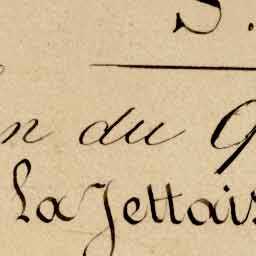 S.
n du G
La Jettais